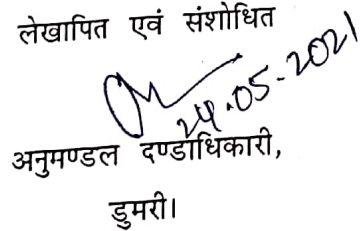 लेखापित एवं संशोधित
24.05.2021
अनुमण्डल दण्डाधिकारी,
डुमरी।